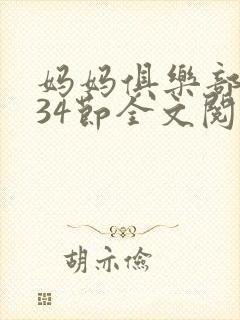 妈妈俱樂部
34節全文閱
胡亦儉